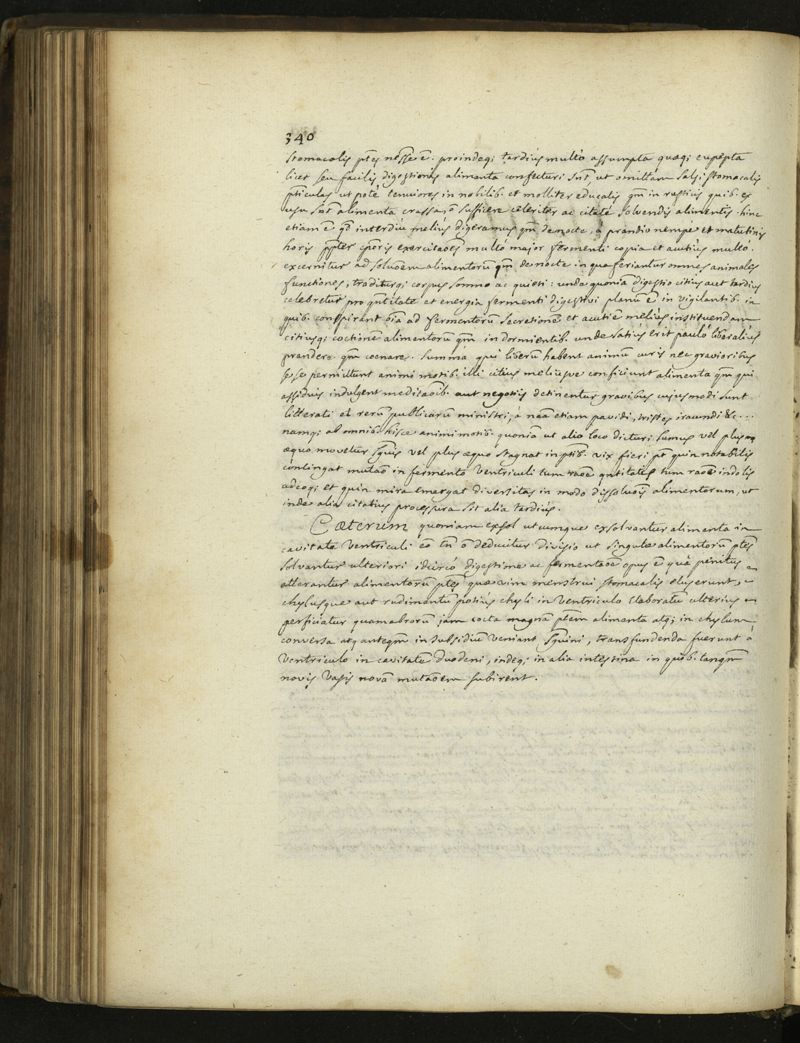 340
stomacalis ptes nosse ē. proindeqȝ tardius multo assumpta quæqȝ eupepta
licet seu facilis digestionis alimenta confecturi snt, ut omittam salsi stomacalis
pticulas ut pote tenuiores in nobilib. et molliter educatis qm in rusticis quib. ex
usu snt alimenta crassa, ō sufficere celeriter ac citate solvendis alimentis. hinc
etiam ē qd interdiu melius digeramus qm de nocte, a prandio nempe et matutinis
horis ppter cporis exercitaōes multo major fermenti copia et acutius multo
excernitur ad soluōem alimentorū qm de nocte in qua feriantur omnes animales
functiones, traditurqȝ corpus somno ac quieti: unde quonia digestio citius aut tardius
celebretur pro qntitate et energia fermenti digestivi planū ē in vigilantib. in
quib. conspirant oīa ad fermentorū secretionē et acutiē melius instituendam
citiusqȝ coctionē alimentorū qm in dormientib. unde satius erit paulo liberalius
prandere qm coenare. summa qui liberū habent animū curis nec gravioribus
se se permittunt animi motib. illi citius meliusve conficiunt alimenta qm qui
assiduis indulgent meditaōib. aut negotiis detinentur gravibus cujusmodi sunt
litterati et rerū publicarū ministri, a nea etiam pavidi, tristes iracundi &c...
namqȝ ab omnib. hisce animi motib. quoniā ut alio loco dicturi sumus vel plus
æquo movetur sguis vel plus æquo stagnat in ptib. vix fieri pt quin notabilis
contingat mutaō in fermento ventriculi tum raōe qntitatis tum raōe indolis
adeoqȝ et quin mira emergat diversitas in modo dissoluōis alimentorum, ut
inde alia citatius processura sit alia tardius.
Cæterum quoniam utcumque exsolvantur alimenta in
cavitate ventriculi eō tn ō deducitur divisio ut singulæ alimentorū ptes
solvantur ulteriori idcircō digestione ac fermentaōe opus ē quā penitus
atterantur alimentorū ptes quæ vim menstrui stomacalis eluserunt,
chylusque aut rudimentū potius chyli in ventriculo elaboratū ulterius
perficiatur quamobrorū jam cocta magnā ptem alimenta atqȝ in chylum
conversa atq antegm in subsidiū veniant sguini, transfundenda fuerunt a
ventriculo in cavitatē duodeni, indeqȝ in alia intestina in quib. tanqm
novis vasis novā mutaōem subirent.